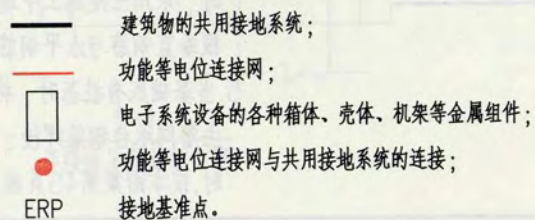 建筑物的共用接地系统；
功能等电位连接网；
电子系统设备的各种箱体、壳体、机架等金属组件；
功能等电位连接网与共用接地系统的连接；
ERP 接地基准点。